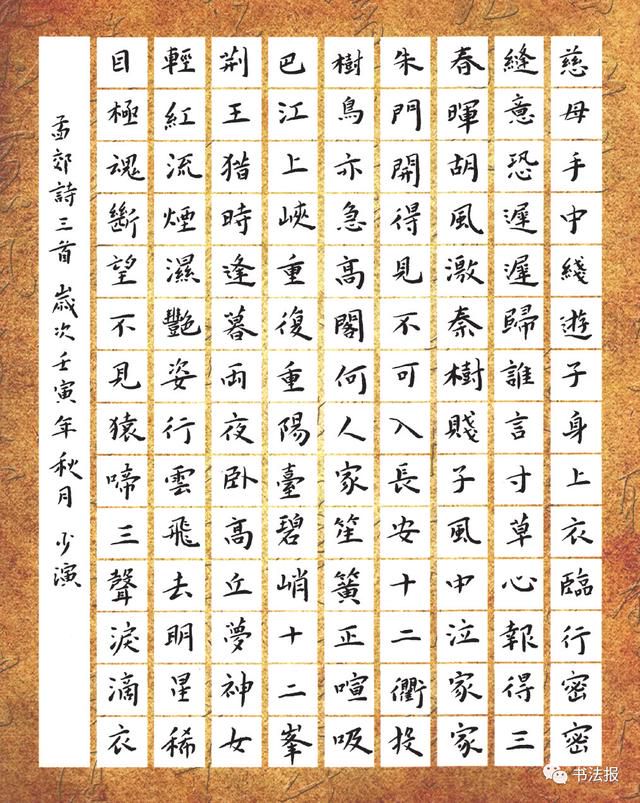 慈母手中綫遊子身上衣臨行密密
縫意恐遲遲歸誰言寸草心報得三
春暉胡風激秦樹賤子風中泣家家
朱門開得見不可入長安十二衢投
樹鳥亦急高閣何人家笙簧正喧吸
巴江上峽重復重陽臺碧峭十二峯
荆王猎時逢暮雨夜卧高丘夢神女
輕紅流煙濕艷姿行雲飛去明星稀
目極魂斷望不見猿啼三聲淚滴衣
孟郊詩三首 歲次壬寅年秋月 少演
书法报